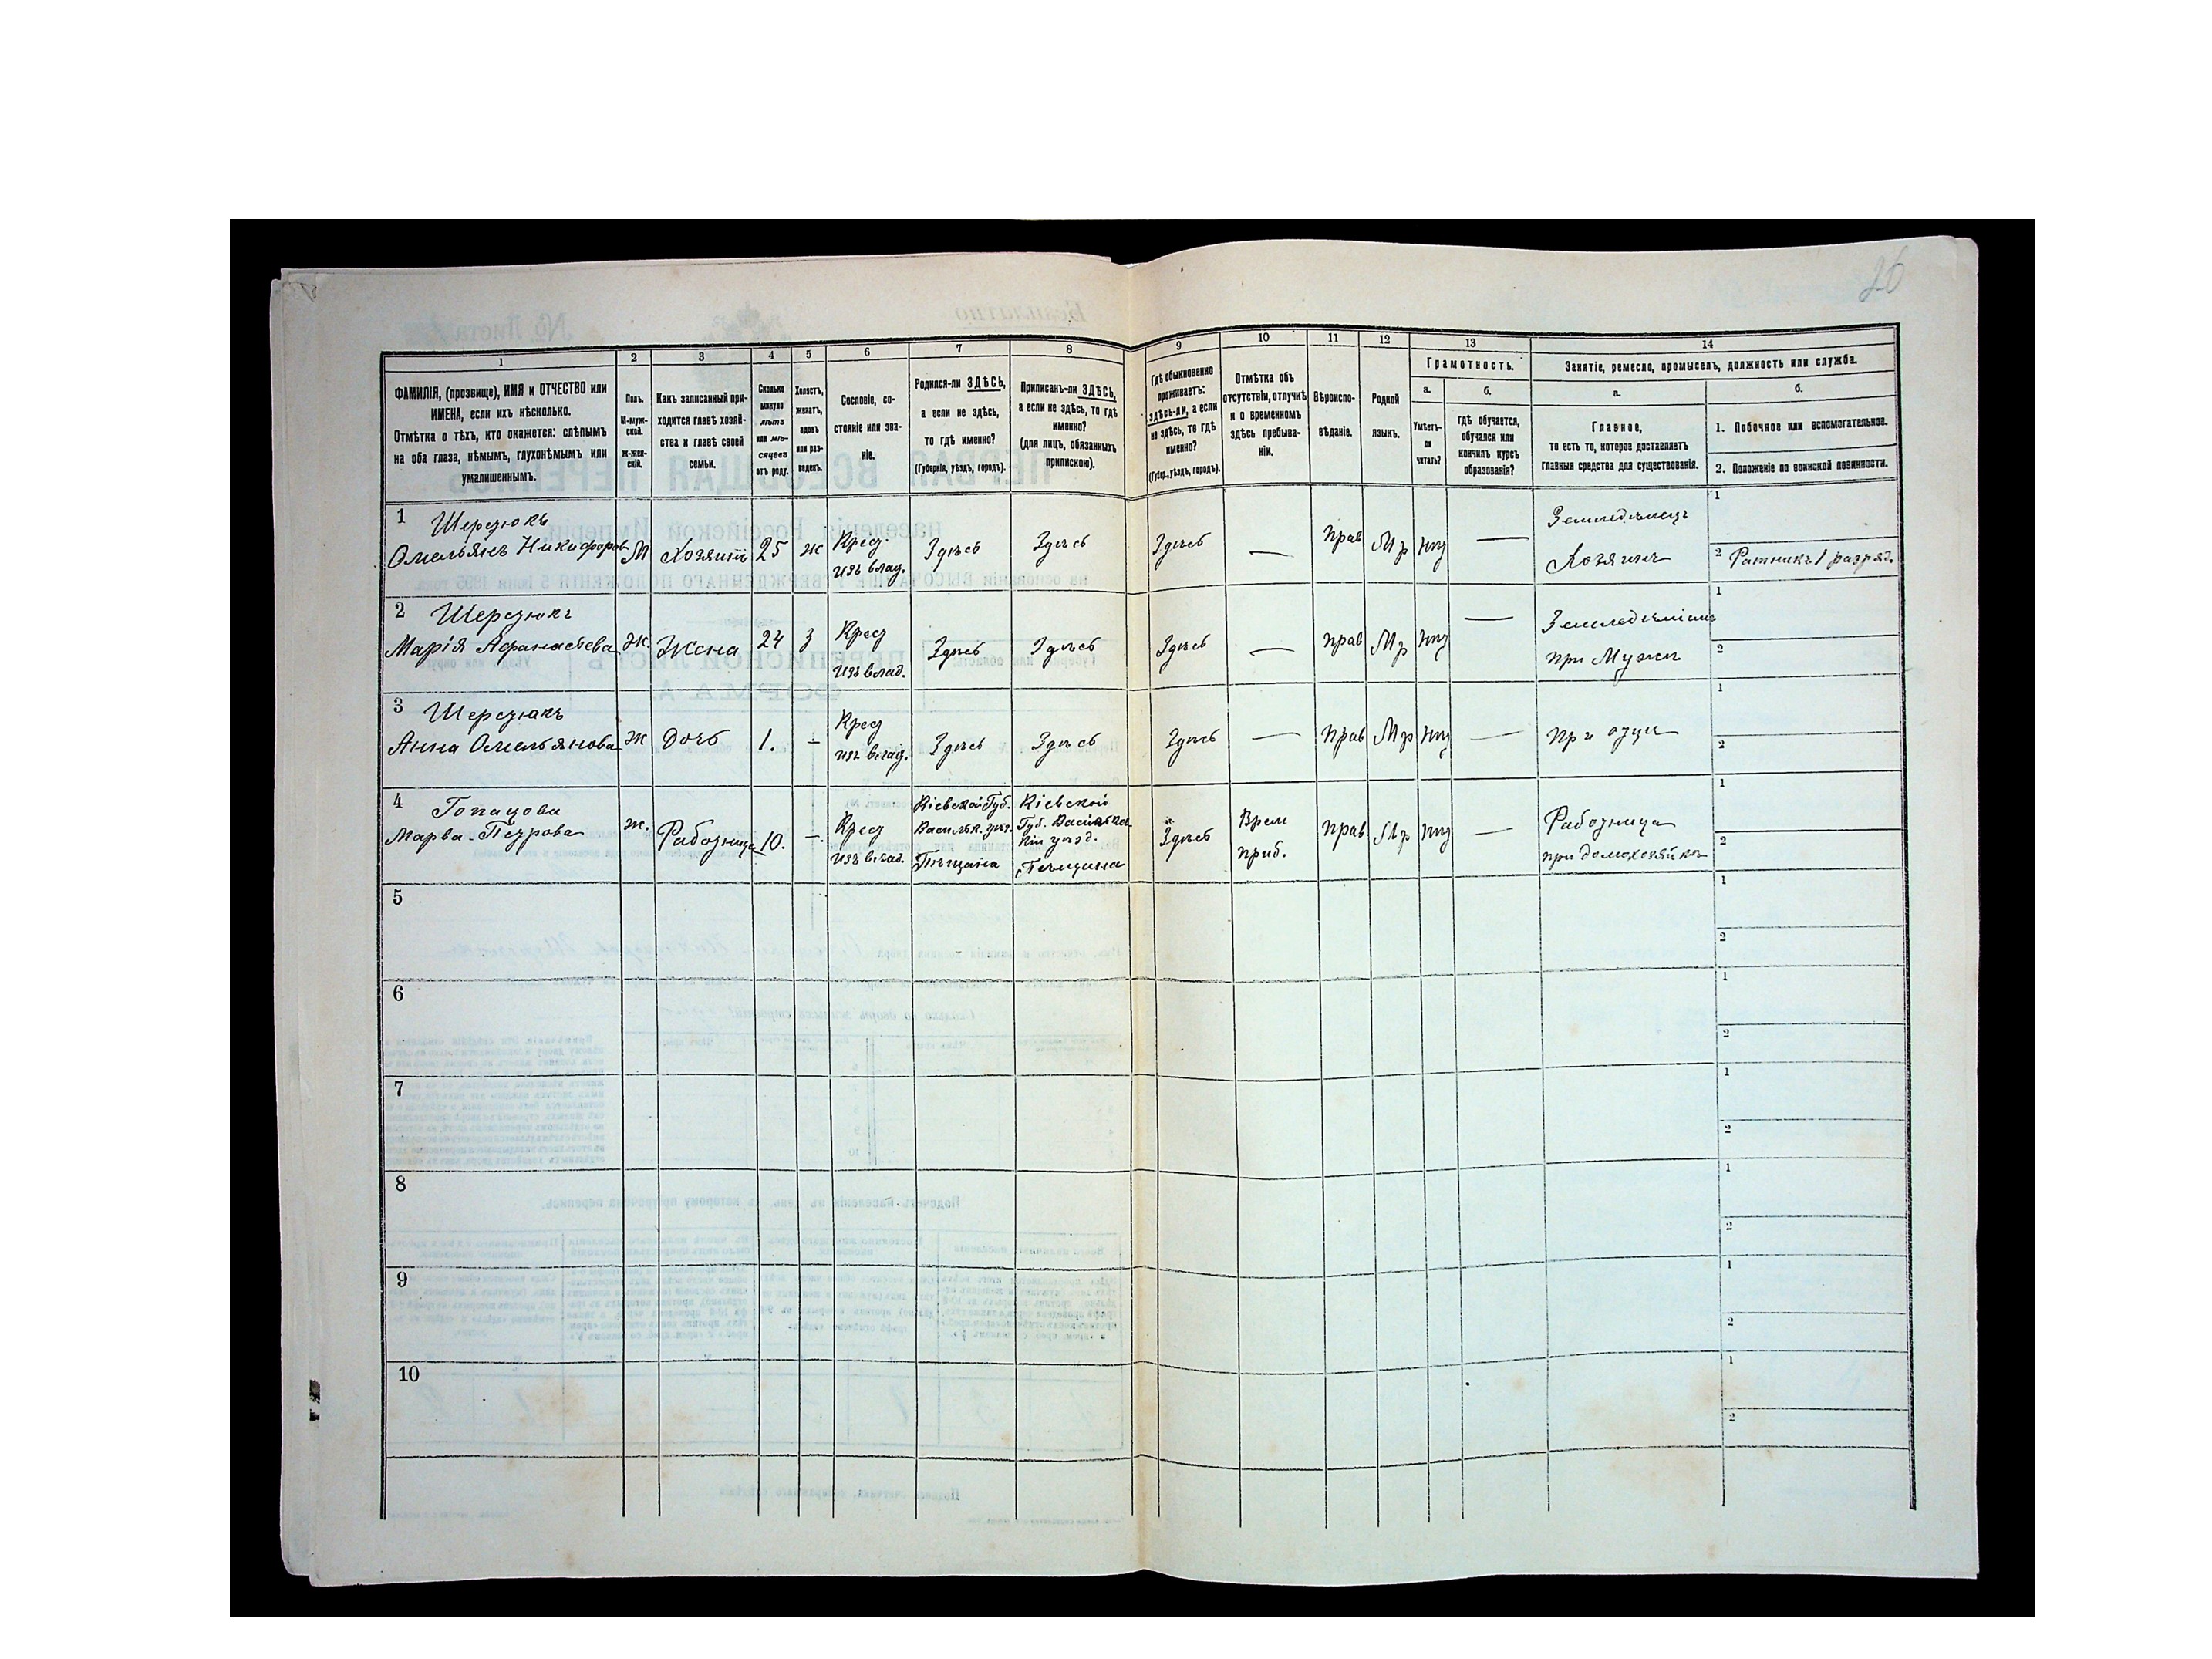 26
1 2 3 4 5 6 7 8 9 10 11 12 13 14
ФАМИЛІЯ, (прозвище), ИМЯ и ОТЧЕСТВО или
ИМЕНА, если ихъ нѣсколько.
Отмѣтка о тѣхъ, кто окажется: слѣпымъ
на оба глаза, нѣмымъ, глухонѣмымъ или
умалишеннымъ.
Полъ.
М-муж-
ской.
Ж-жен-
скій.
Какъ записанный при-
ходится главѣ хозяй-
ства и главѣ своей
семьи.
Сколько
минуло
лѣтъ
или мѣ-
сяцевъ
отъ роду.
Холостъ,
женатъ,
вдовъ
или раз-
веденъ.
Сословіе, со-
стояніе или зва-
ніе.
Родился-ли ЗДѢСЬ,
а если не здѣсь,
то гдѣ именно?
(Губернія, уѣздъ, городъ).
Приписанъ-ли ЗДѢСЬ,
а если не здѣсь, то гдѣ
именно?
(для лицъ, обязанныхъ
припискою).
Гдѣ обыкновенно
проживаетъ:
здѣсь-ли, а если
не здѣсь, то гдѣ
именно?
(Губер., уѣздъ, городъ).
Отмѣтка объ
отсутствіи, отлучкѣ
и о временномъ
здѣсь пребыва-
ніи.
Вѣроиспо-
вѣданіе.
Родной
языкъ.
Грамотность.
а.
Умѣетъ-
ли
читать?
б.
гдѣ обучается,
обучался или
кончилъ курсъ
образованія?
Занятіе, ремесло, промыселъ, должность или служба.
а.
Главное,
то есть то, которое доставляетъ
главныя средства для существованія.
б.
1. Побочное или вспомогательное.
2. Положеніе по воинской повинности.
1 Шерстюкъ
Омельянъ Никифоров М Хозяинъ 25 ж Крест. изъ влад. Здѣсь Здѣсь Здѣсь — Прав Мр нѣт — Земледѣлецъ
Хозяинъ
1
2 Ратникъ 1 разряд.
2 Шерстюкъ
Марія Афанасьева Ж. Жена 24 з Крест изъ влад. Здѣсь Здѣсь Здѣсь — прав Мр нѣт —
при Мужѣ
1
2
3
Анна Омельянова Ж Дочь 1. — Крест изъ влад. Здѣсь Здѣсь Здѣсь — Прав Мр нѣт — при отцѣ
1
2
4
Петрова Ж. Работница 10. — Крест изъ влад.
Кіевской Губ.
Васильк. уѣз.
Кіевской
Губ. Васильков
кій уѣзд.
Здѣсь Врем
приб. прав. Мр нѣт — Работница
при домохозяйкѣ
1
2
5
1
2
6
1
2
7
1
2
8
1
2
9
1
2
10
1
2